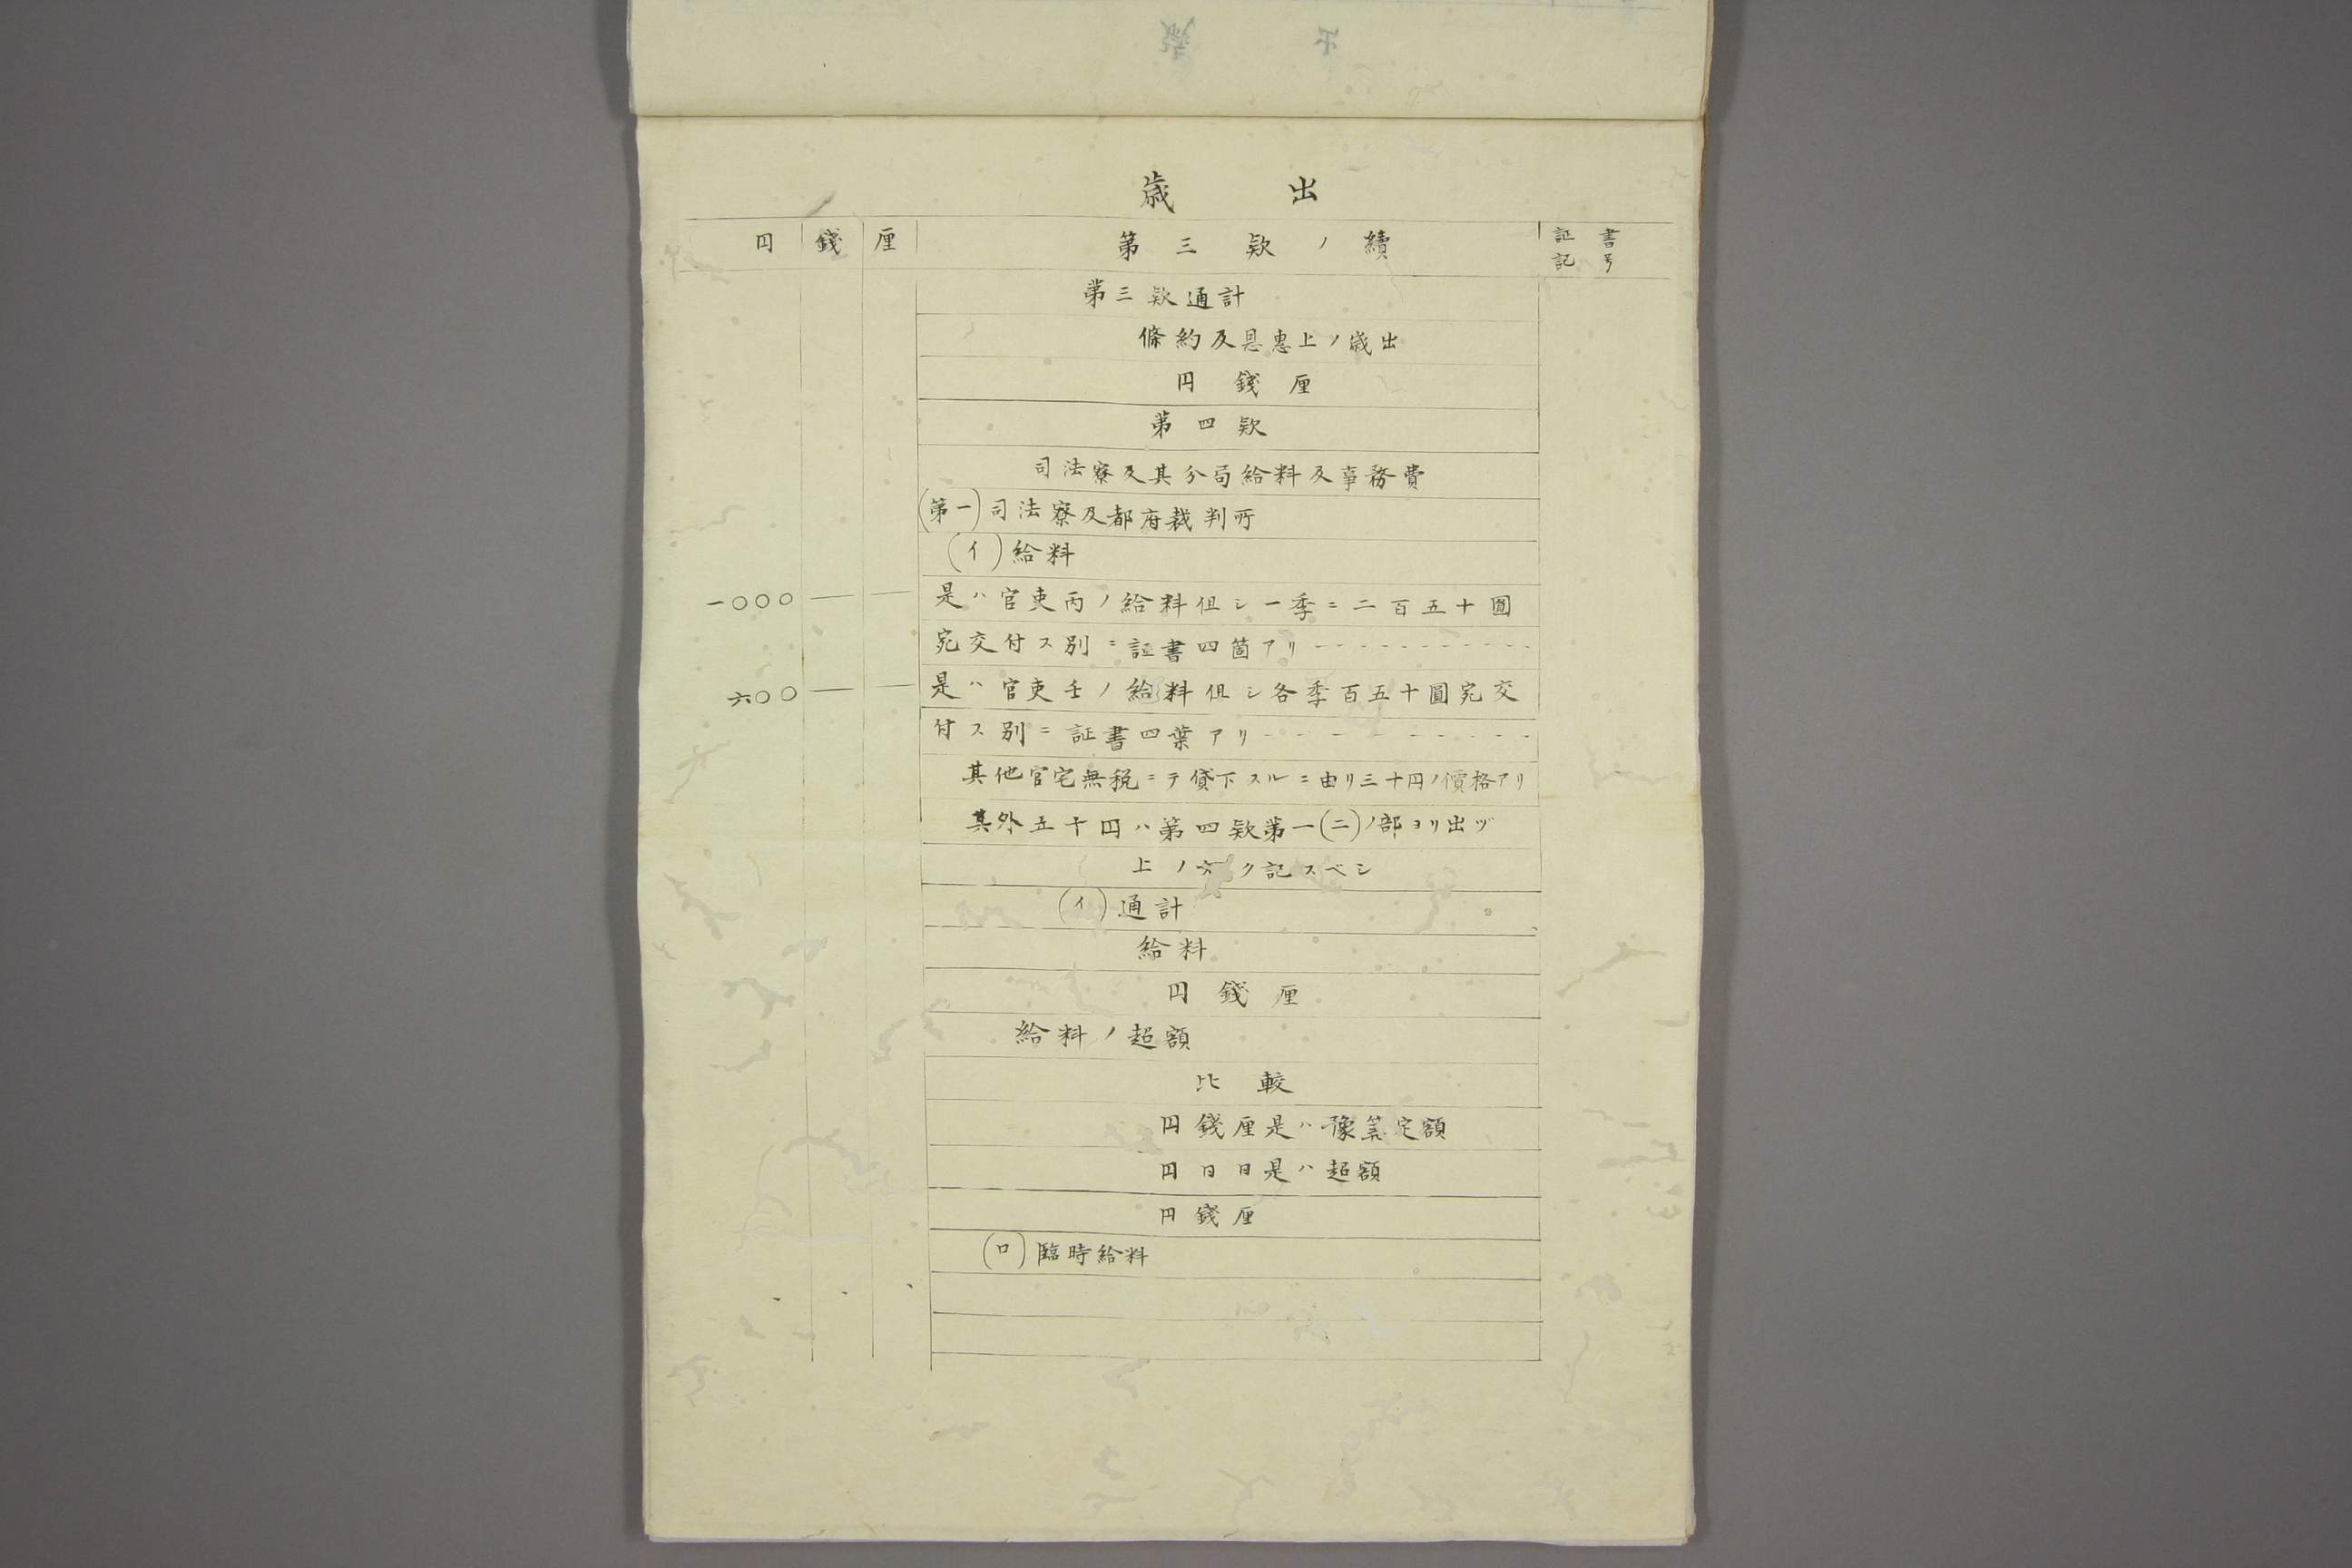 歳出
円 錢 厘 第三欵ノ續 証書記号
第三欵通計
條約及恩惠上ノ歳出
円錢厘
第四欵
司法寮及其分局給料及事務費
(第一)司法寮及都府裁判所
(イ)給料
一〇〇〇 — — 是ハ官吏丙ノ給料但シ一季ニ二百五十圓
宛交付ス別ニ証書四箇アリ
六〇〇 — — 是ハ官吏壬ノ給料但シ各季百五十圓宛交
付ス別ニ証書四葉アリ
其他官宅無税ニテ貸下スルニ由リ三十円ノ價格アリ
其外五十円ハ第四欵第一(二)ノ部ヨリ出ヅ
上ノ ク記スベシ
(イ)通計
給料
円錢厘
給料ノ超額
比較
円錢厘是ハ豫算定額
円日日是ハ超額
円錢厘
(ロ)臨時給料